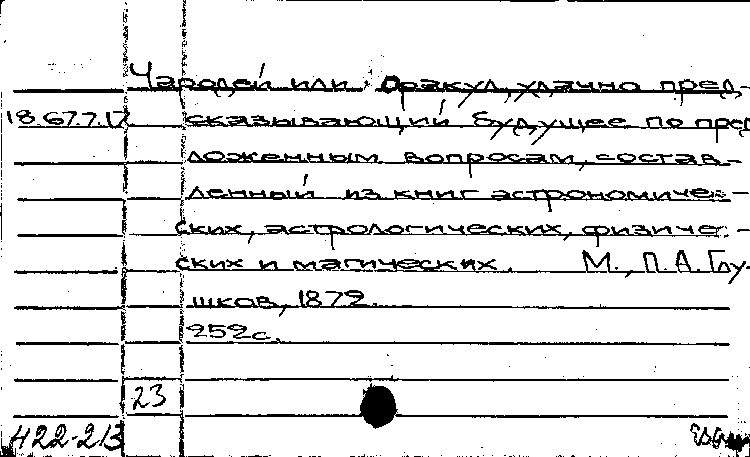 Чародей или Оракул, удачно пред-
18.67.7.17 сказывающий будущее по пред
ложенным вопросам, состав-
ленный из книг астрономичес-
ских, астрологических, физиче-
ских и магических. М., П.А. Глу-
шков, 1872.
252с.
23
H22-213